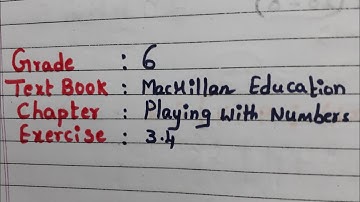 Grade : 6
Text Book : MacMillan Education
Chapter : Playing With Numbers
Exercise : 3.4